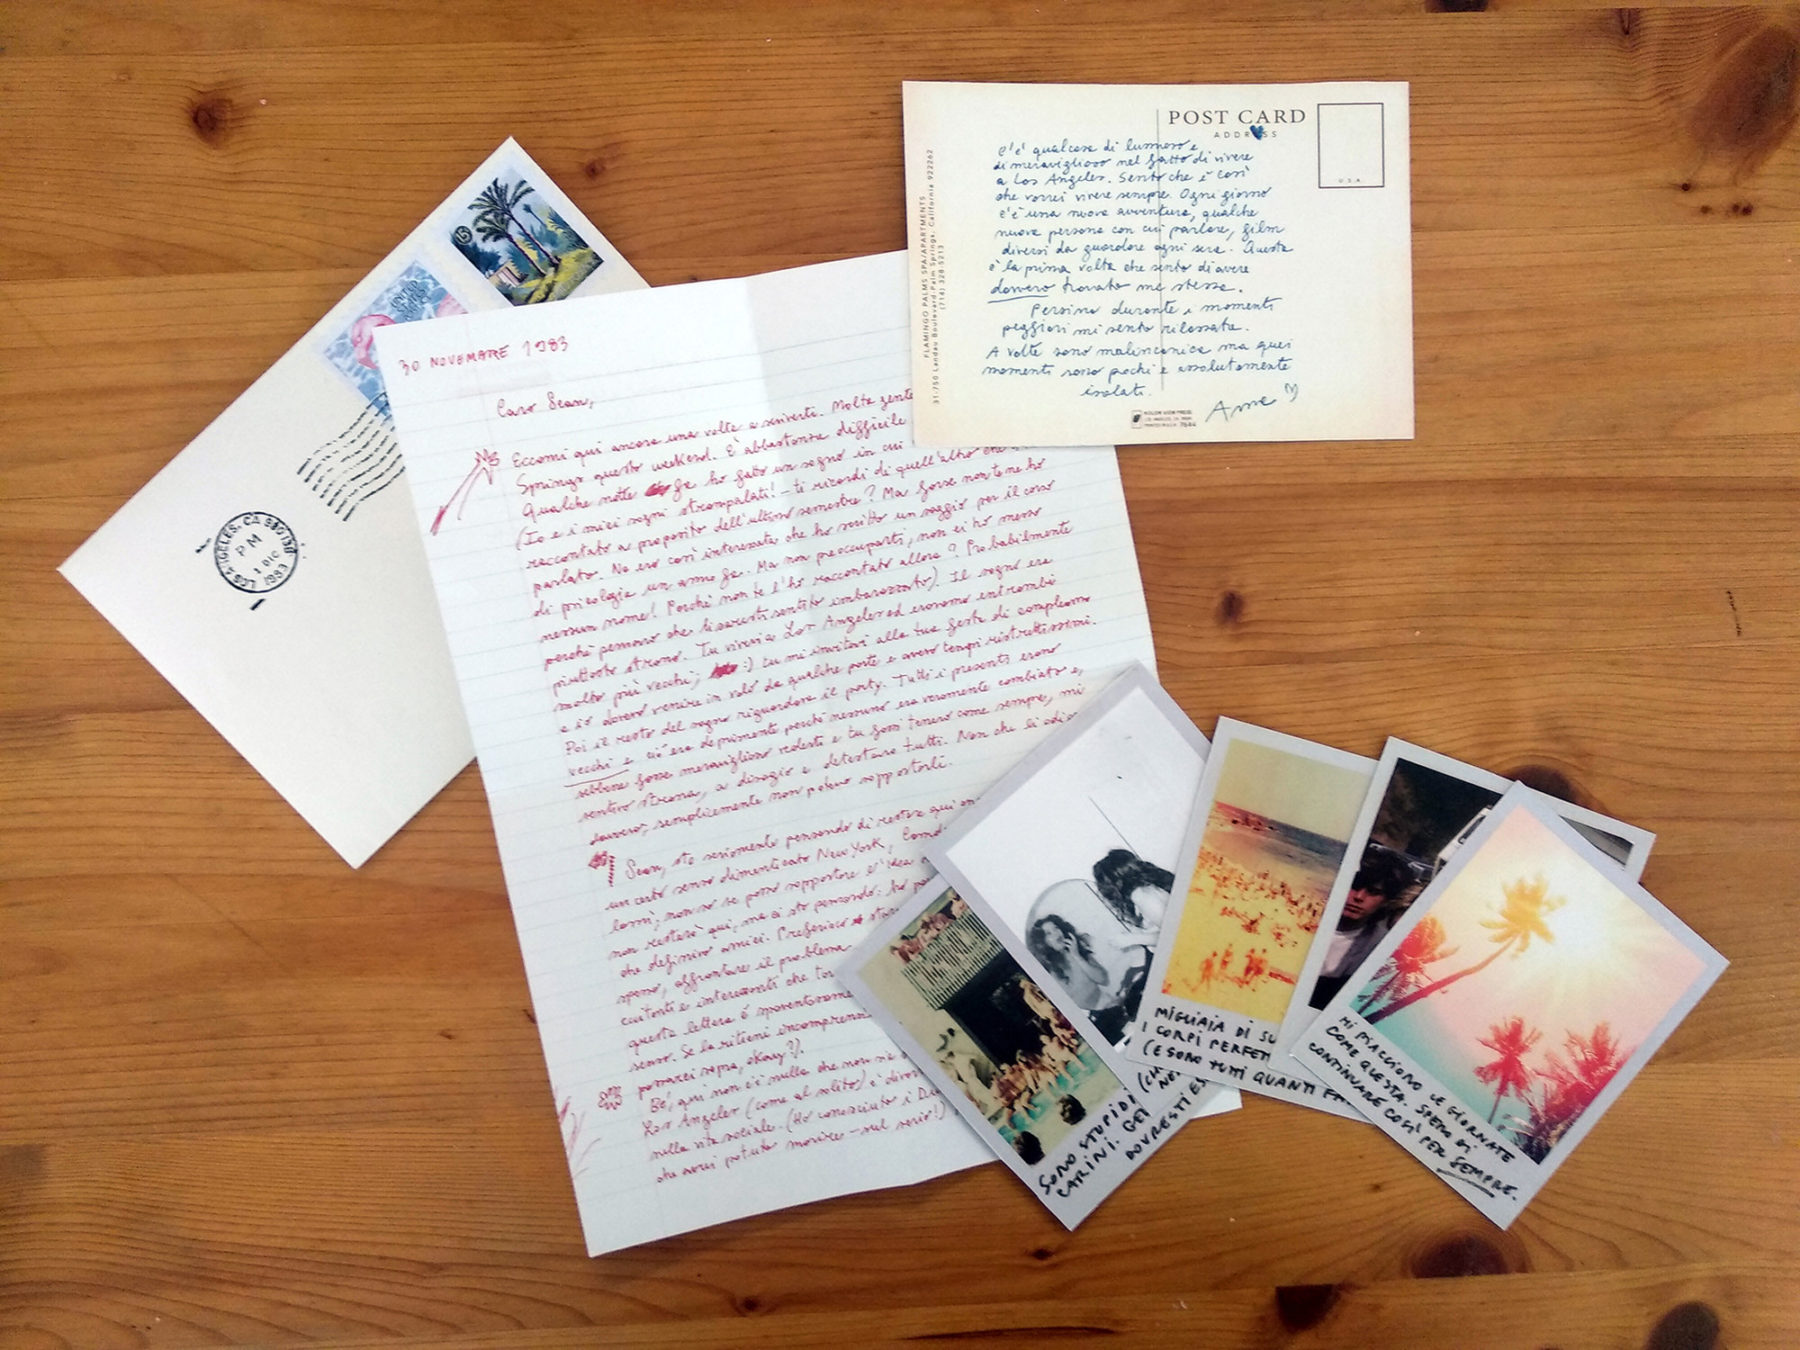 15
UNITED
STATES
LOS ANGELES, CA
PM
1 DIC
1983
30 NOVEMBRE 1983
Caro Sean,
Eccomi qui ancora una volta a scriverti. Molta gente
Springs questo weekend. È abbastanza difficile
Qualche notte fa ho fatto un sogno in cui
(Io e i miei sogni strampalati! - ti ricordi di quell'altro che
raccontato a proposito dell'ultimo semestre? Ma forse non te ne ho
parlato. Ne ero così interessata che ho scritto un saggio per il corso
di psicologia un anno fa. Ma non preoccuparti, non ci ho messo
nessun nome! Perché non te l'ho raccontato allora? Probabilmente
perché pensavo che ti saresti sentito imbarazzato). Il sogno era
piuttosto strano. Tu vivevi a Los Angeles ed eravamo entrambi
molto più vecchi; :) tu mi invitavi alla tua festa di compleanno
e io dovevo venire in volo da qualche parte e avevo tempi ristrettissimi.
Poi il resto del sogno riguardava il party. Tutti i presenti erano
vecchi e ciò era deprimente perché nessuno era veramente cambiato e,
sebbene fosse meraviglioso vederti e tu fossi tenero come sempre, mi
sentivo strana, a disagio e detestavo tutti. Non che li odiassi
davvero, semplicemente non potevo sopportarli.
Sean, sto seriamente pensando di restare qui
un certo senso dimenticato New York, Camden
lami; non so se posso sopportare l'idea
non resterò qui, ma ci sto pensando: ho
che definivo amici. Preferisco
spesso, affrontare il problema
eccitanti e interessanti che
questa lettera è spaventosamente
senso. Se la ritieni incomprensibile
passarci sopra, okay?).
Bé, qui non c'è nulla che non sia
Los Angeles (come al solito) è
nella vita sociale. (Ho conosciuto i
che avrei potuto morire - sul serio!)
POST CARD
ADDRESS
USA
FLAMINGO PALMS SPA/APARTMENTS
31-750 Landau Boulevard-Palm Springs, California 922262
(714) 328-5213
C'è qualcosa di luminoso e
di meraviglioso nel fatto di vivere
a Los Angeles. Sento che è così
che vorrei vivere sempre. Ogni giorno
c'è una nuova avventura, qualche
nuova persona con cui parlare, film
diversi da guardare ogni sera. Questa
è la prima volta che sento di avere
davvero trovato me stessa.
Persino durante i momenti
peggiori mi sento rilassata.
A volte sono malinconica ma quei
momenti sono pochi e assolutamente
isolati.
Anne
SONO STUPIDI
CARINI.
DOVRESTI ES
MIGLIAIA DI SU
I CORPI PERFET
(E SONO TUTTI QUANTI FA
MI PIACCIONO LE GIORNATE
COME QUESTA. SPERO DI
CONTINUARE COSÌ PER SEMPRE.